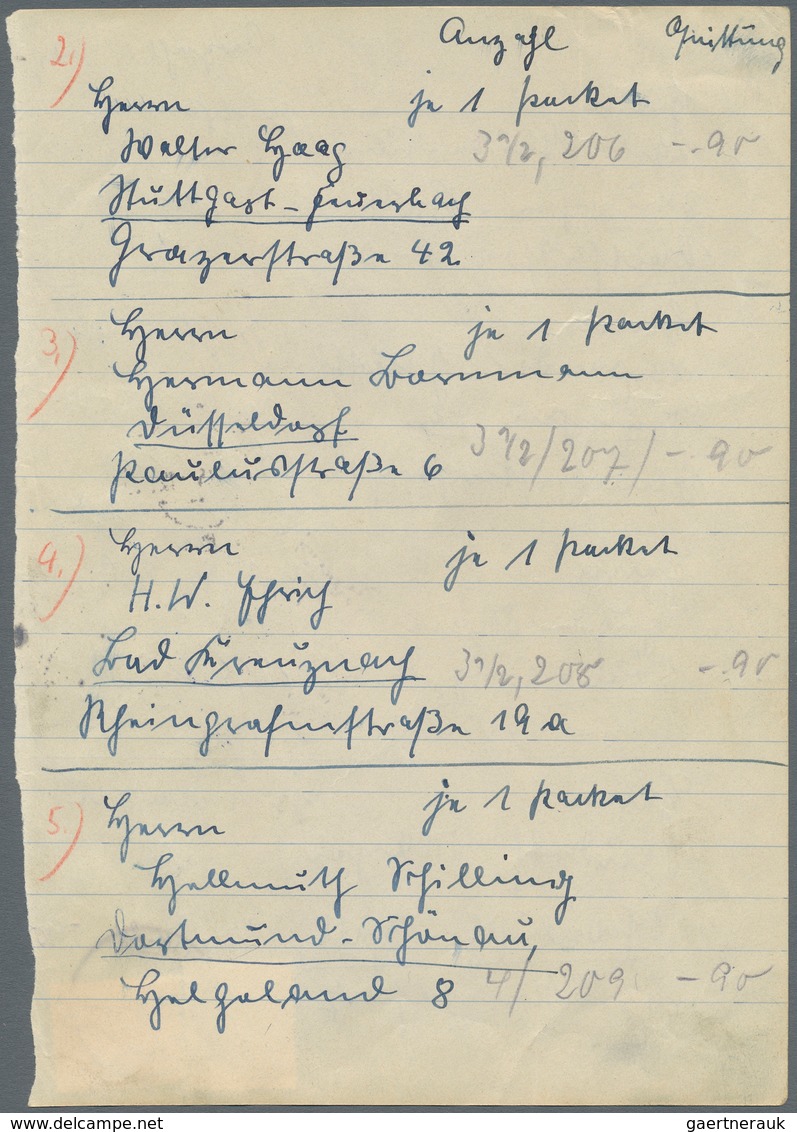 Anzahl Quittung
2.)
Herrn je 1 Packet
Walter Haag 3 1/2, 206 -.90
Stuttgart-Feuerbach
Grazerstraße 42.
3.)
Herrn je 1 Packet
Hermann Bornmann
Düsseldorf
Paulusstraße 6 3 1/2/207/-.90
4.)
Herrn je 1 Packet
H. W.
Bad Kreuznach 3 1/2, 208 -.90
Rheingrafenstraße 19a
5.)
Herrn je 1 Packet
Hellmuth Schilling
Dortmund-Schönau,
Helgoland 8 4/209 -90
gaertnerauk